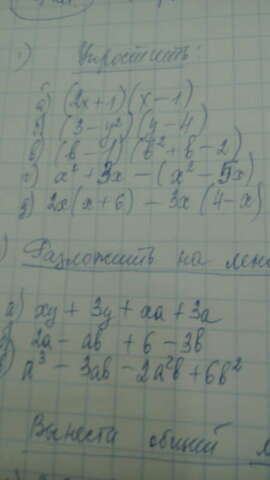 1) Упростить:
а) (2x+1)(x-1)
б) (3-y²)(y-4)
в) (b-1)(b²+b-2)
г) a²+3x-(x²-5x)
д) 2x(x+6)-3x(4-x)
) Разложить на
а) xy+3y+xa+3a
б) 2a-ab+6-3b
в) a³-3ab-2a²b+6b²
Вынести общий